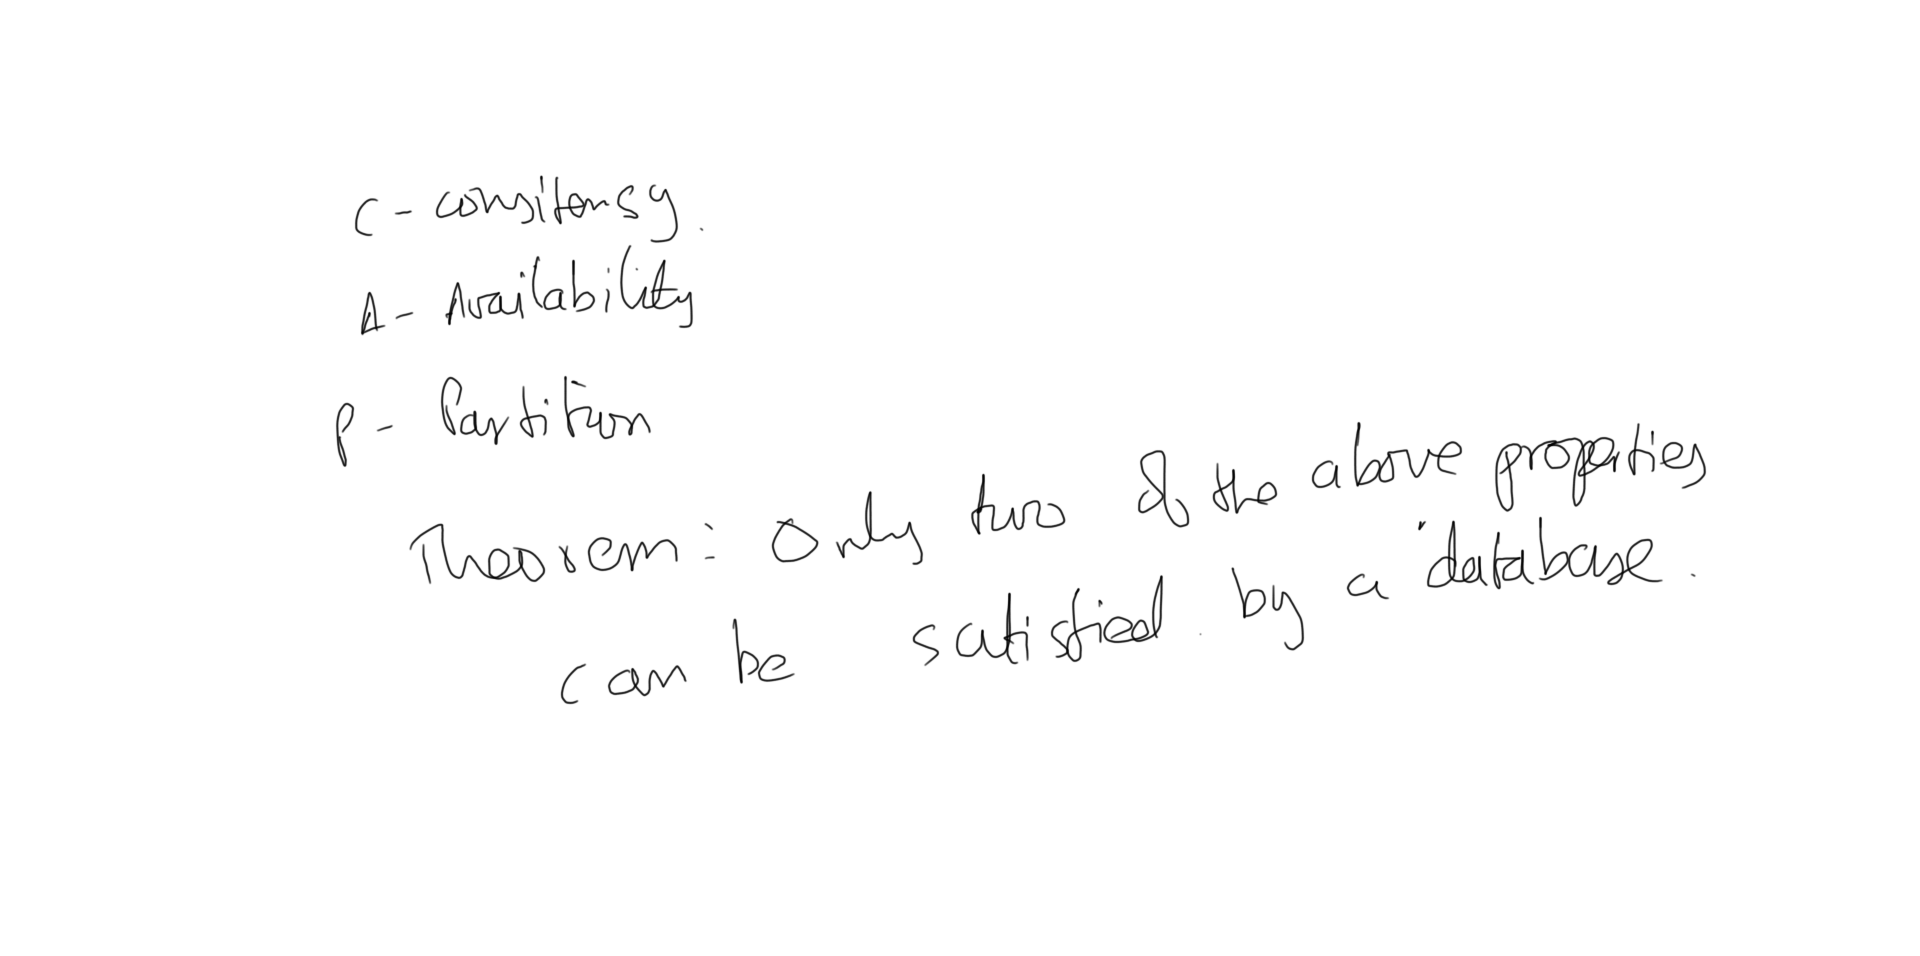 C - consitensy.
A - Availability
P - Partition
Theorem: Only two of the above properties
can be satisfied by a database.